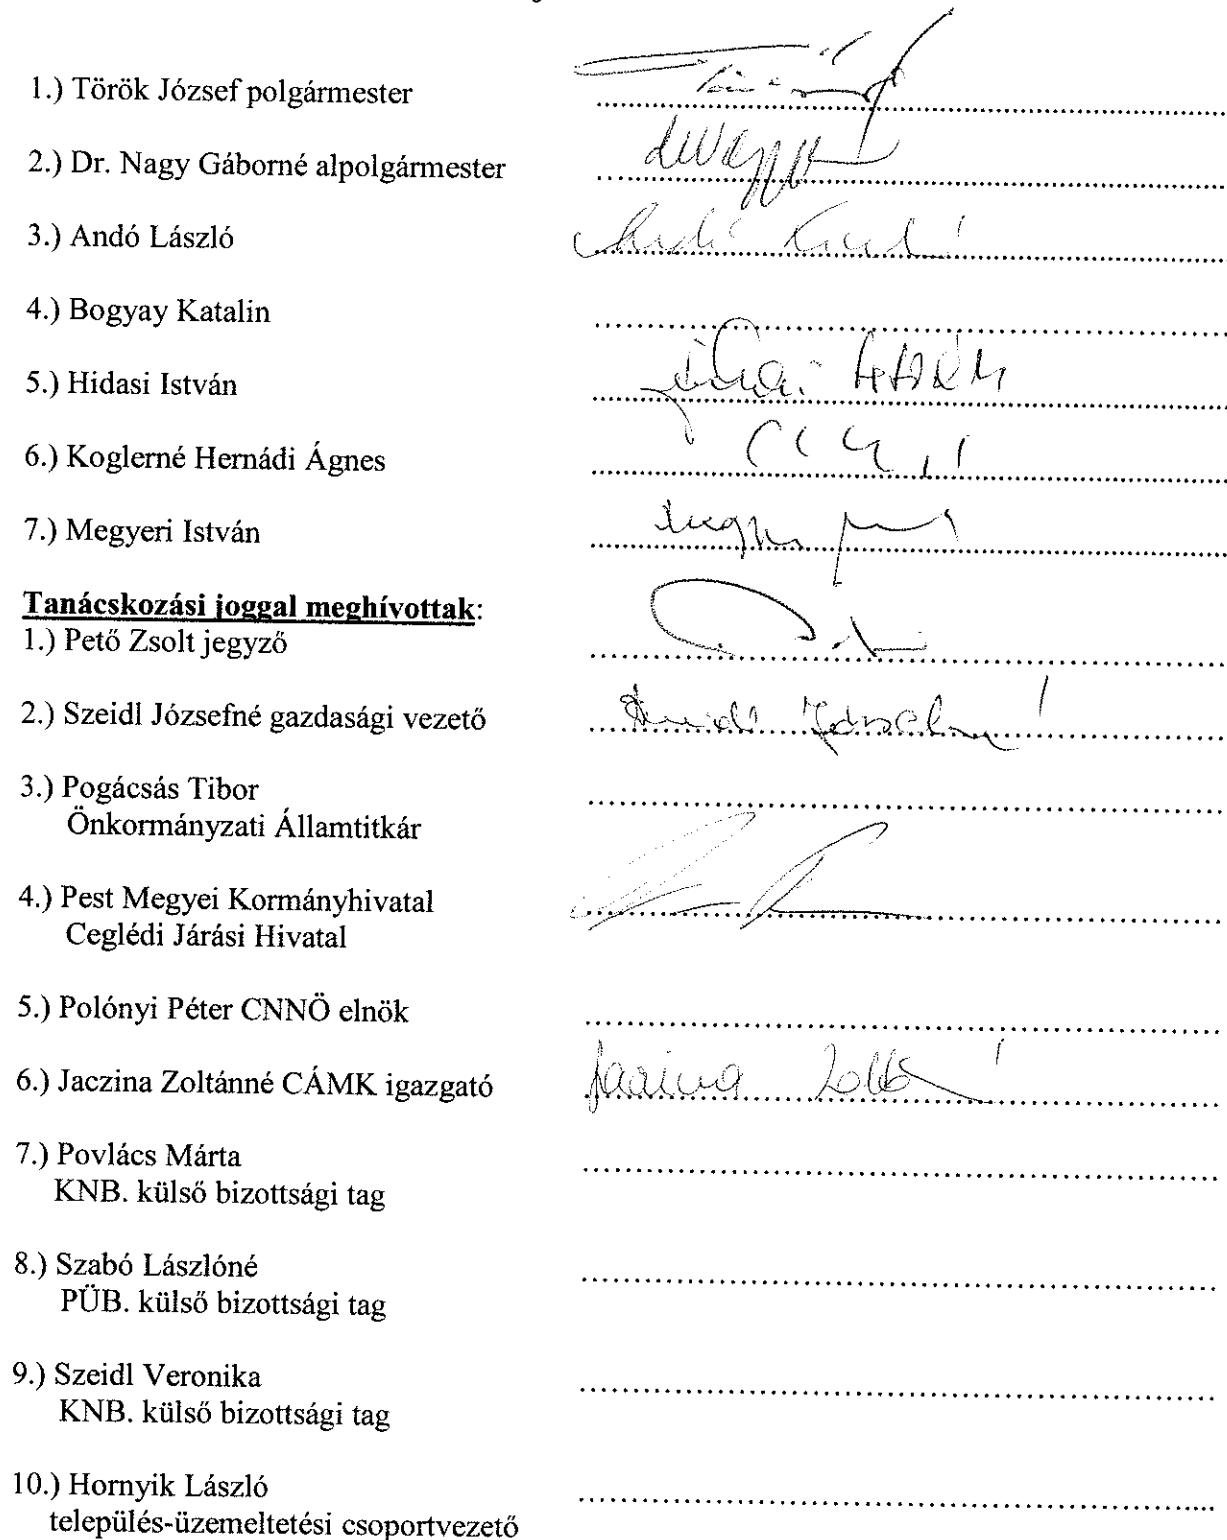 1.) Török József polgármester
2.) Dr. Nagy Gáborné alpolgármester
3.) Andó László
4.) Bogyay Katalin
5.) Hidasi István
6.) Koglerné Hernádi Ágnes
7.) Megyeri István
Tanácskozási joggal meghívottak:
1.) Pető Zsolt jegyző
2.) Szeidl Józsefné gazdasági vezető
3.) Pogácsás Tibor
Önkormányzati Államtitkár
4.) Pest Megyei Kormányhivatal
Ceglédi Járási Hivatal
5.) Polónyi Péter CNNÖ elnök
6.) Jaczina Zoltánné CÁMK igazgató
7.) Povlács Márta
KNB. külső bizottsági tag
8.) Szabó Lászlóné
PÜB. külső bizottsági tag
9.) Szeidl Veronika
KNB. külső bizottsági tag
10.) Hornyik László
település-üzemeltetési csoportvezető